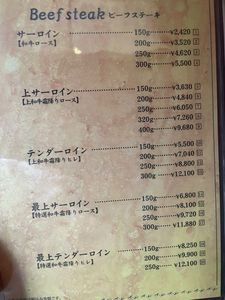 Beef steak ビーフステーキ
サーロイン 150g ¥2,420
【和牛ロース】 200g ¥3,520
250g ¥4,620
300g ¥5,500
上サーロイン 150g ¥3,630
【上和牛霜降りロース】 200g ¥4,840
250g ¥6,050
320g ¥7,260
400g ¥9,680
テンダーロイン 150g ¥5,500
【上和牛霜降りヒレ】 200g ¥7,040
250g ¥8,800
300g ¥12,100
最上サーロイン 150g ¥6,800
【特選和牛霜降りロース】 200g ¥8,100
250g ¥9,720
300g ¥11,880
最上テンダーロイン 150g ¥8,250
【特選和牛霜降りヒレ】 200g ¥9,900
250g ¥12,100